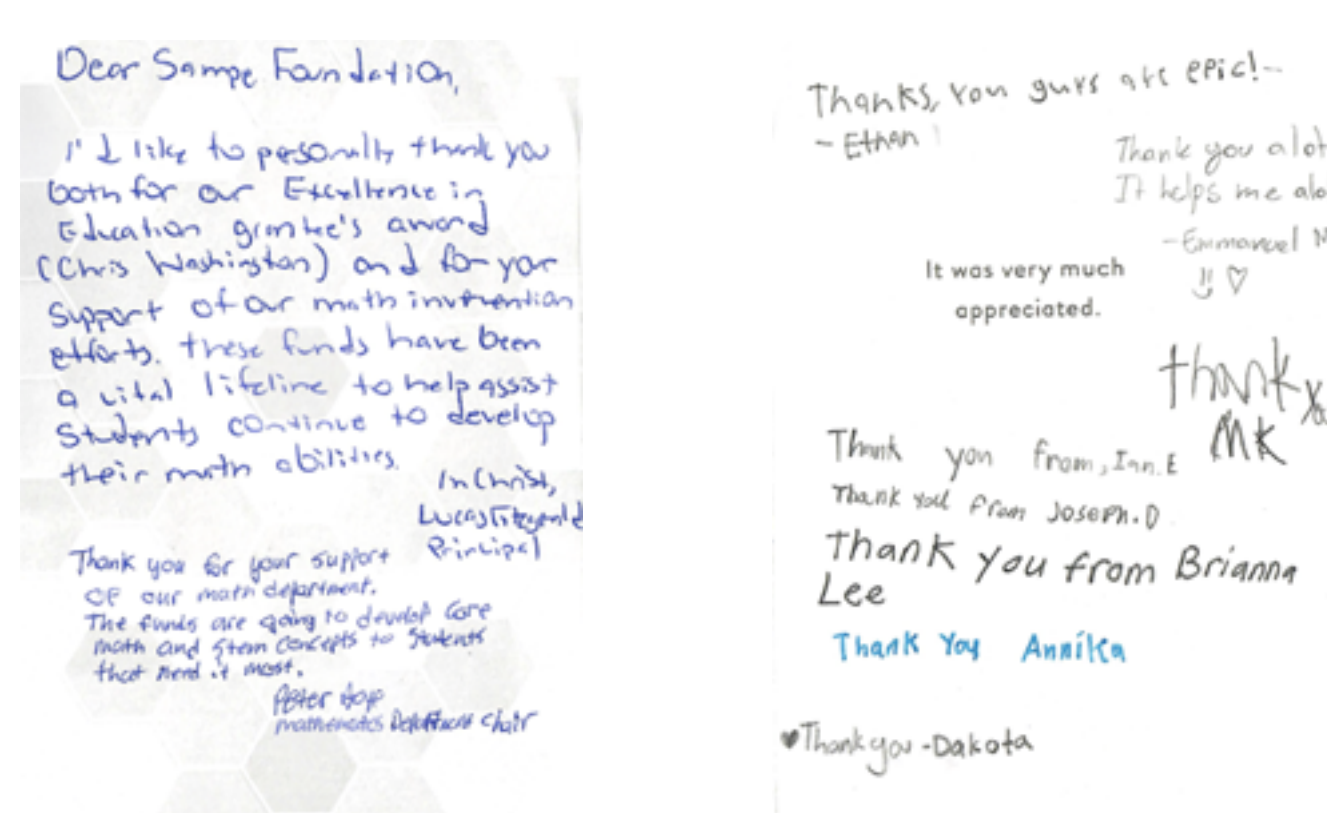 Dear Sampe Foundation,
I'd like to pesonally thank you
both for our Excellence in
Education grantee's award
(Chris Washington) and for your
support of our math intervention
efforts. These funds have been
a vital lifeline to help assist
students continue to develop
their math abilities.
In Christ,
Lucas Fitzgerald
Principal
Thank you for your support
of our math department.
The funds are going to develop core
math and stem concepts to students
that need it most.
Peter
mathematics Department chair
Thanks, you guys are epic!~
- Ethan
Thank you alot
It helps me alo
-Emmanuel N
It was very much
appreciated.
thank
MK
Thank you from, Ian.E
Thank you from Joseph.D
Thank you from Brianna
Lee
Thank You Annika
♥Thank you -Dakota